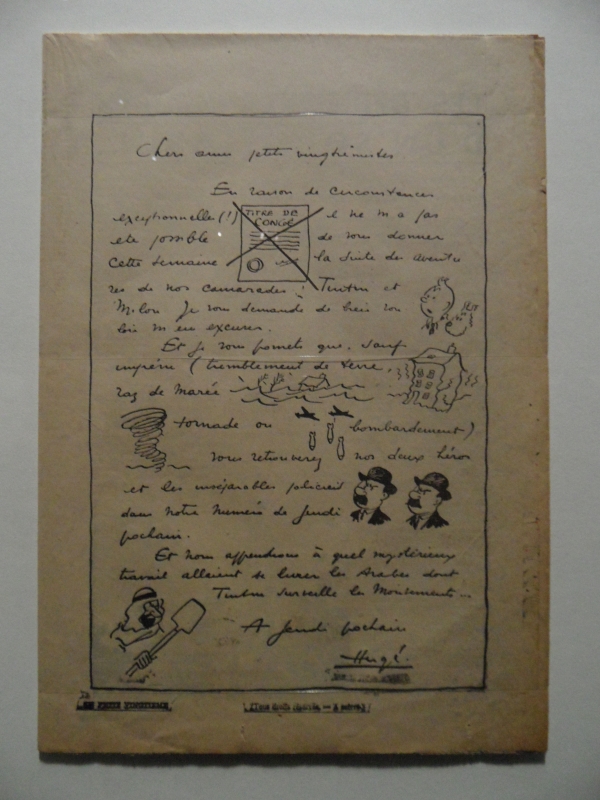 Chers amis petits vingtiémistes.
En raison de circonstances
exceptionnelles (!) il ne m'a pas
TITRE DE
CONGÉ
été possible de vous donner
cette semaine la suite des aventu
res de nos camarades! Tintin et
Milou. Je vous demande de bien vou
loir m'en excuser.
Et je vous promets que, sauf
imprévu (tremblement de terre,
raz de marée
tornade ou bombardement)
vous retrouverez nos deux héros
et les inséparables policiers
dans notre numéro de Jeudi
prochain.
Et nous apprendrons à quel mystérieux
travail allaient se livrer les Arabes dont
Tintin surveille les mouvements...
A Jeudi prochain
Hergé.
LE PETIT VINGTIEME